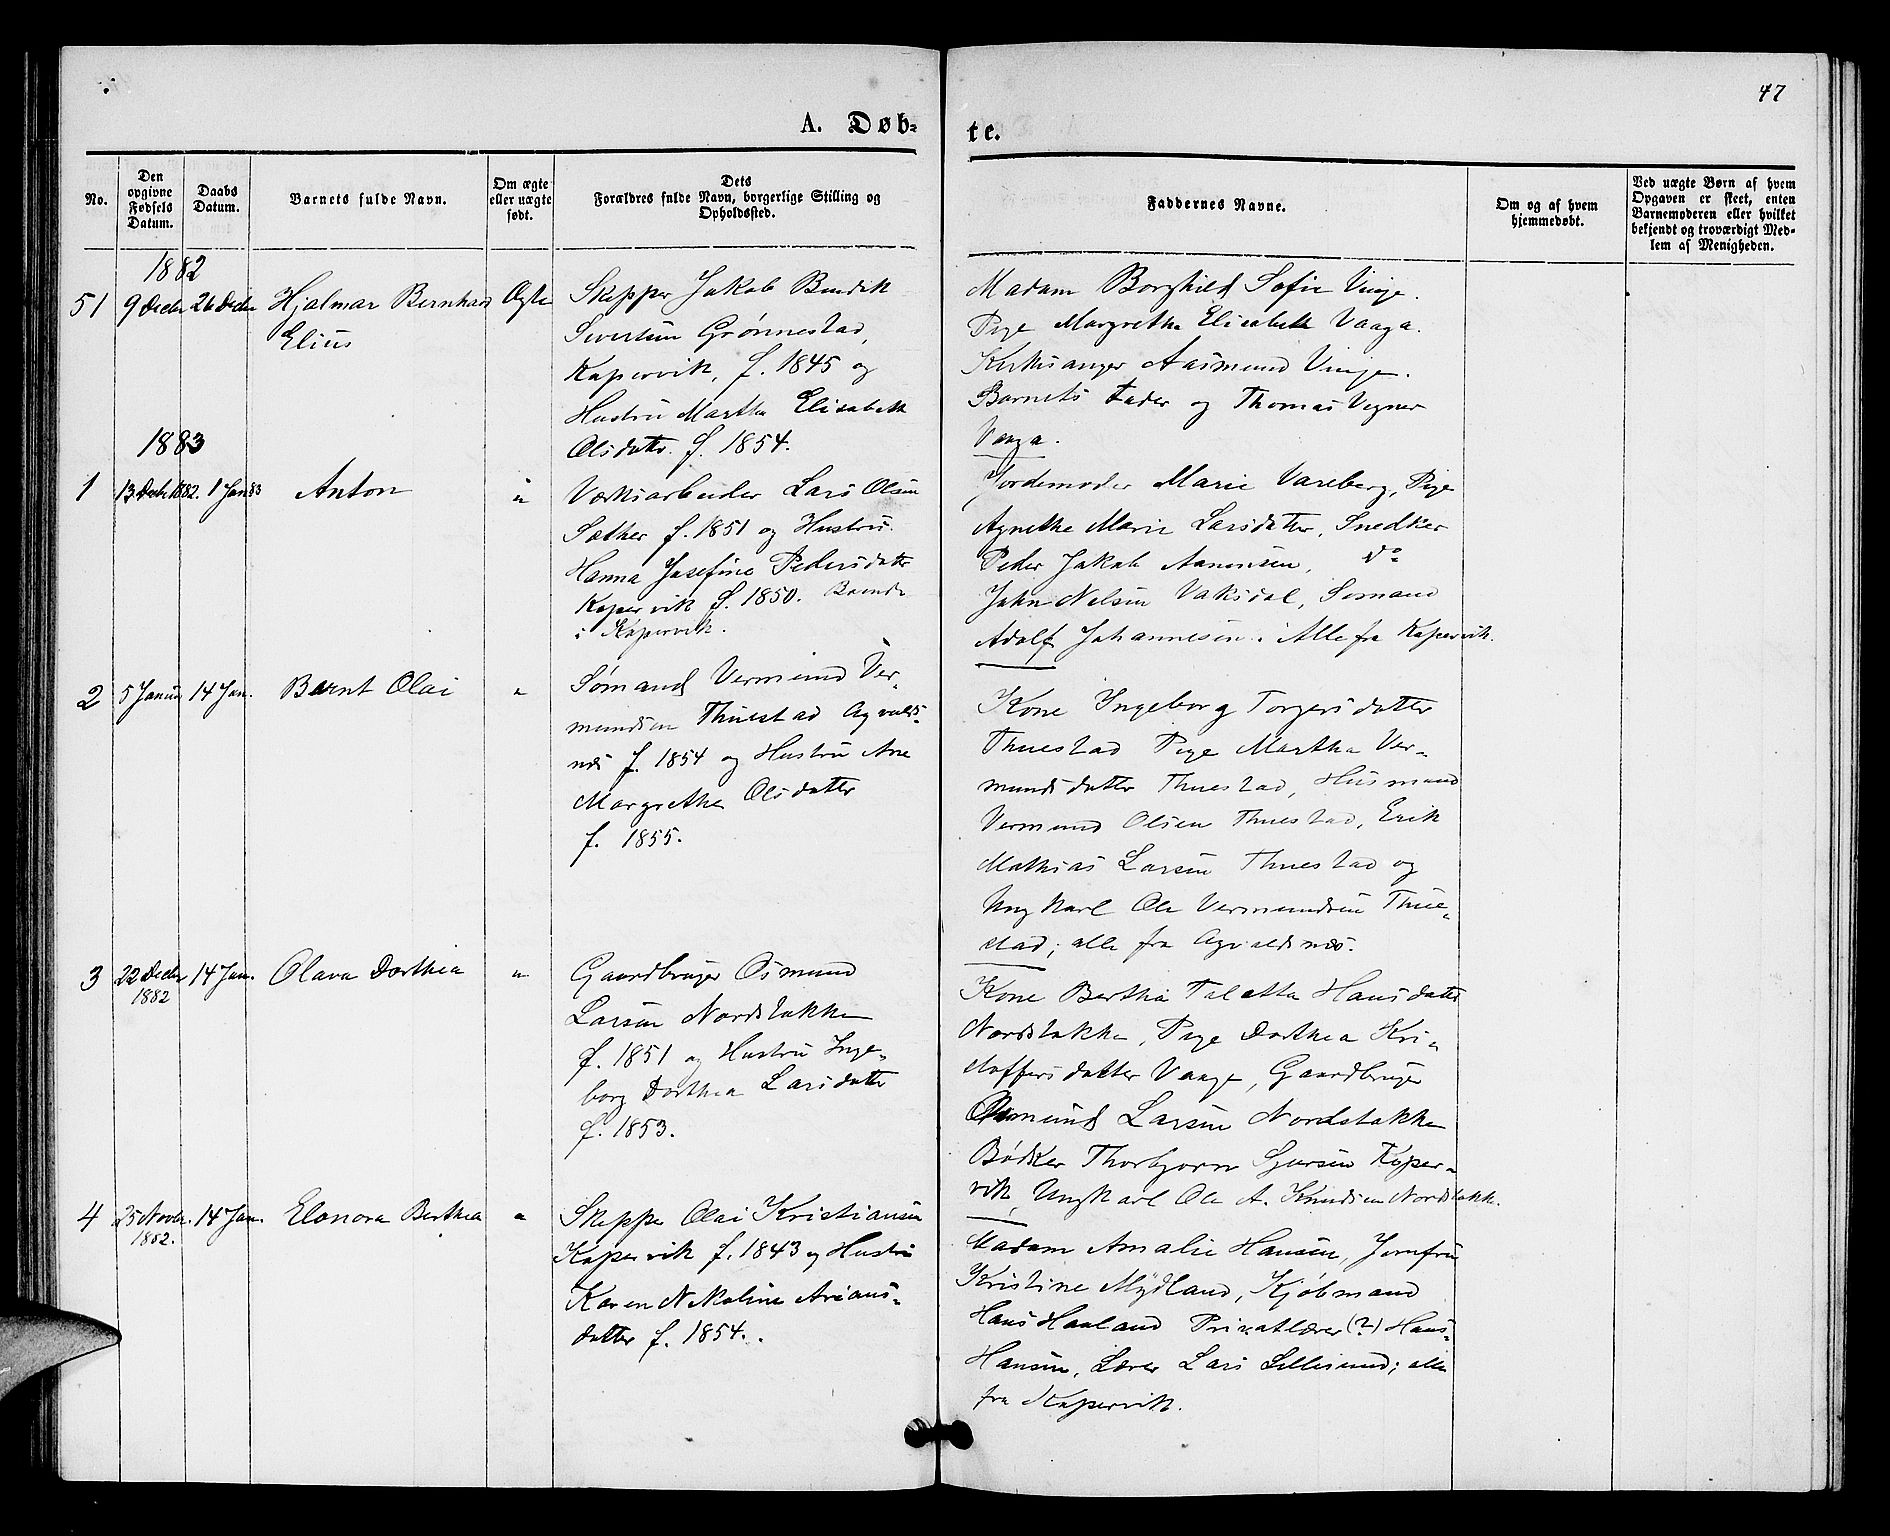 47
A. Døb-
te.
No.
Den opgivne Fødsels Datum.
Daabs Datum.
Barnets fulde Navn.
Om ægte eller uægte født.
Dets Forældres fulde Navn, borgerlige Stilling og Opholdssted.
Faddernes Navne.
Om og af hvem hjemmedøbt.
Ved uægte Børn af hvem Opgaven er skeet, enten Barnemoderen eller hvilket bekjendt og troværdigt Medlem af Menigheden.
1882
51 9 Decbr 26 Decbr Hjalmar Bernhard Ægte
Elius
Skipper Jakob Bendik
Sivertsen Grønnestad,
Kopervik, f. 1845 og
Hustru Martha Elisabeth
Olsdatter f. 1854.
Madam Borghild Sofie Vinje.
Pige Margrethe Elisabeth Vaaga.
Kirkesanger Aasmund Vinje.
Barnets Fader og Thomas Vegner
Vaaga.
1883
1 13 Decbr 1882. 1 Jan 83 Anton "
Værksarbeider Lars Olsen
Sæther f. 1851 og Hustru
Hanna Josefine Pedersdatter
Kopervik f. 1850. Boende
i Kopervik.
Jordemoder Marie Vareberg, Pige
Agnethe Marie Larsdatter, Snedker
Peder Jakob Aanensen, do
John Nelsen Vaksdal, Sømand
Adolf Johannesen. Alle fra Kopervik.
2 5 Januar 14 Jan. Bernt Olai "
Sømand Vermund Ver-
mundsen Thuestad Agvalds-
næs f. 1854 og Hustru Ane
Margrethe Olsdatter
f. 1855.
Kone Ingeborg Torgersdatter
Thuestad Pige Martha Ver-
mundsdatter Thuestad, Husmand
Vermund Olsen Thuestad, Erik
Mathias Larsen Thuestad og
Ungkarl Ole Vermundsen Thue-
stad; alle fra Agvaldsnæs.
3 22 Decbr 14 Jan. Olava Dorthea "
1882
Gaardbruger Osmund
Larsen Nordstokke
f. 1851 og Hustru Inge-
borg Dorthea Larsdatter
f. 1853.
Kone Berthe Taletta Hansdatter
Nordstokke, Pige Dorthea Kri-
stoffersdatter Vaage, Gaardbruger
Osmund Larsen Nordstokke
Bødker Thorbjørn Sjursen Koper-
vik, Ungkarl Ole A. Knudsen Nordstokke.
4 25 Novbr. 14 Jan. Elonora Berthea "
1882.
Skipper Olai Kristiansen
Kopervik f. 1843 og Hustru
Karen Nikoline Arians-
datter f. 1854.
Madam Amalie Hansen, Jomfru
Kristine Mydland, Kjøbmand
Hans Haaland Privatlærer (?) Hans
Hansen, Lærer Lars Lillesund; alle
fra Kopervik.